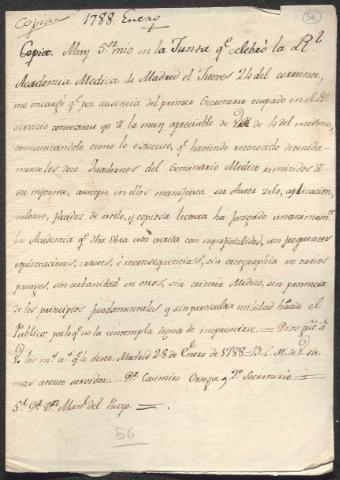 Copia 1788. Enero 56
Copia. Muy Sor. mio en la Junta qe celebró la Rl.
Academia Medica de Madrid el Jueves 24 del corriente,
me encargó qe por ausencia del primer Secretario ocupado en el Rl.
servicio contestase yo á la muy apreciable de V. de 4 del mismo,
comunicandole como lo executo, qe haviendo reconocido detenida-
mente los doce Quadernos del Seminario Medico remitidos á
su informe, aunque en ellos manifiesta su Autor zelo, aplicacion,
talento, fluidez de estilo, y copiosa lectura ha juzgado unanimemte.
la Academia qe dha Obra está escrita con superficialidad, con frequentes
equivocaciones, errores, é inconsequencias, sin ortographia en varios
parages, sin urbanidad en otros, sin criterio Medico, sin pericia
de los principios fundamentales y sin particular utilidad hacia el
Publico: por lo qe no la contempla digna de imprimirse. = Dios gue á
V. los ms. as. qe le deseo. Madrid 28 de Enero de 1788 = B. L. M. de V. su
mas atento servidor. = Dr. Casimiro Ortega, 2o. Secretario =
Sr. Dn. Dn. Manl. del Pueyo. =
56